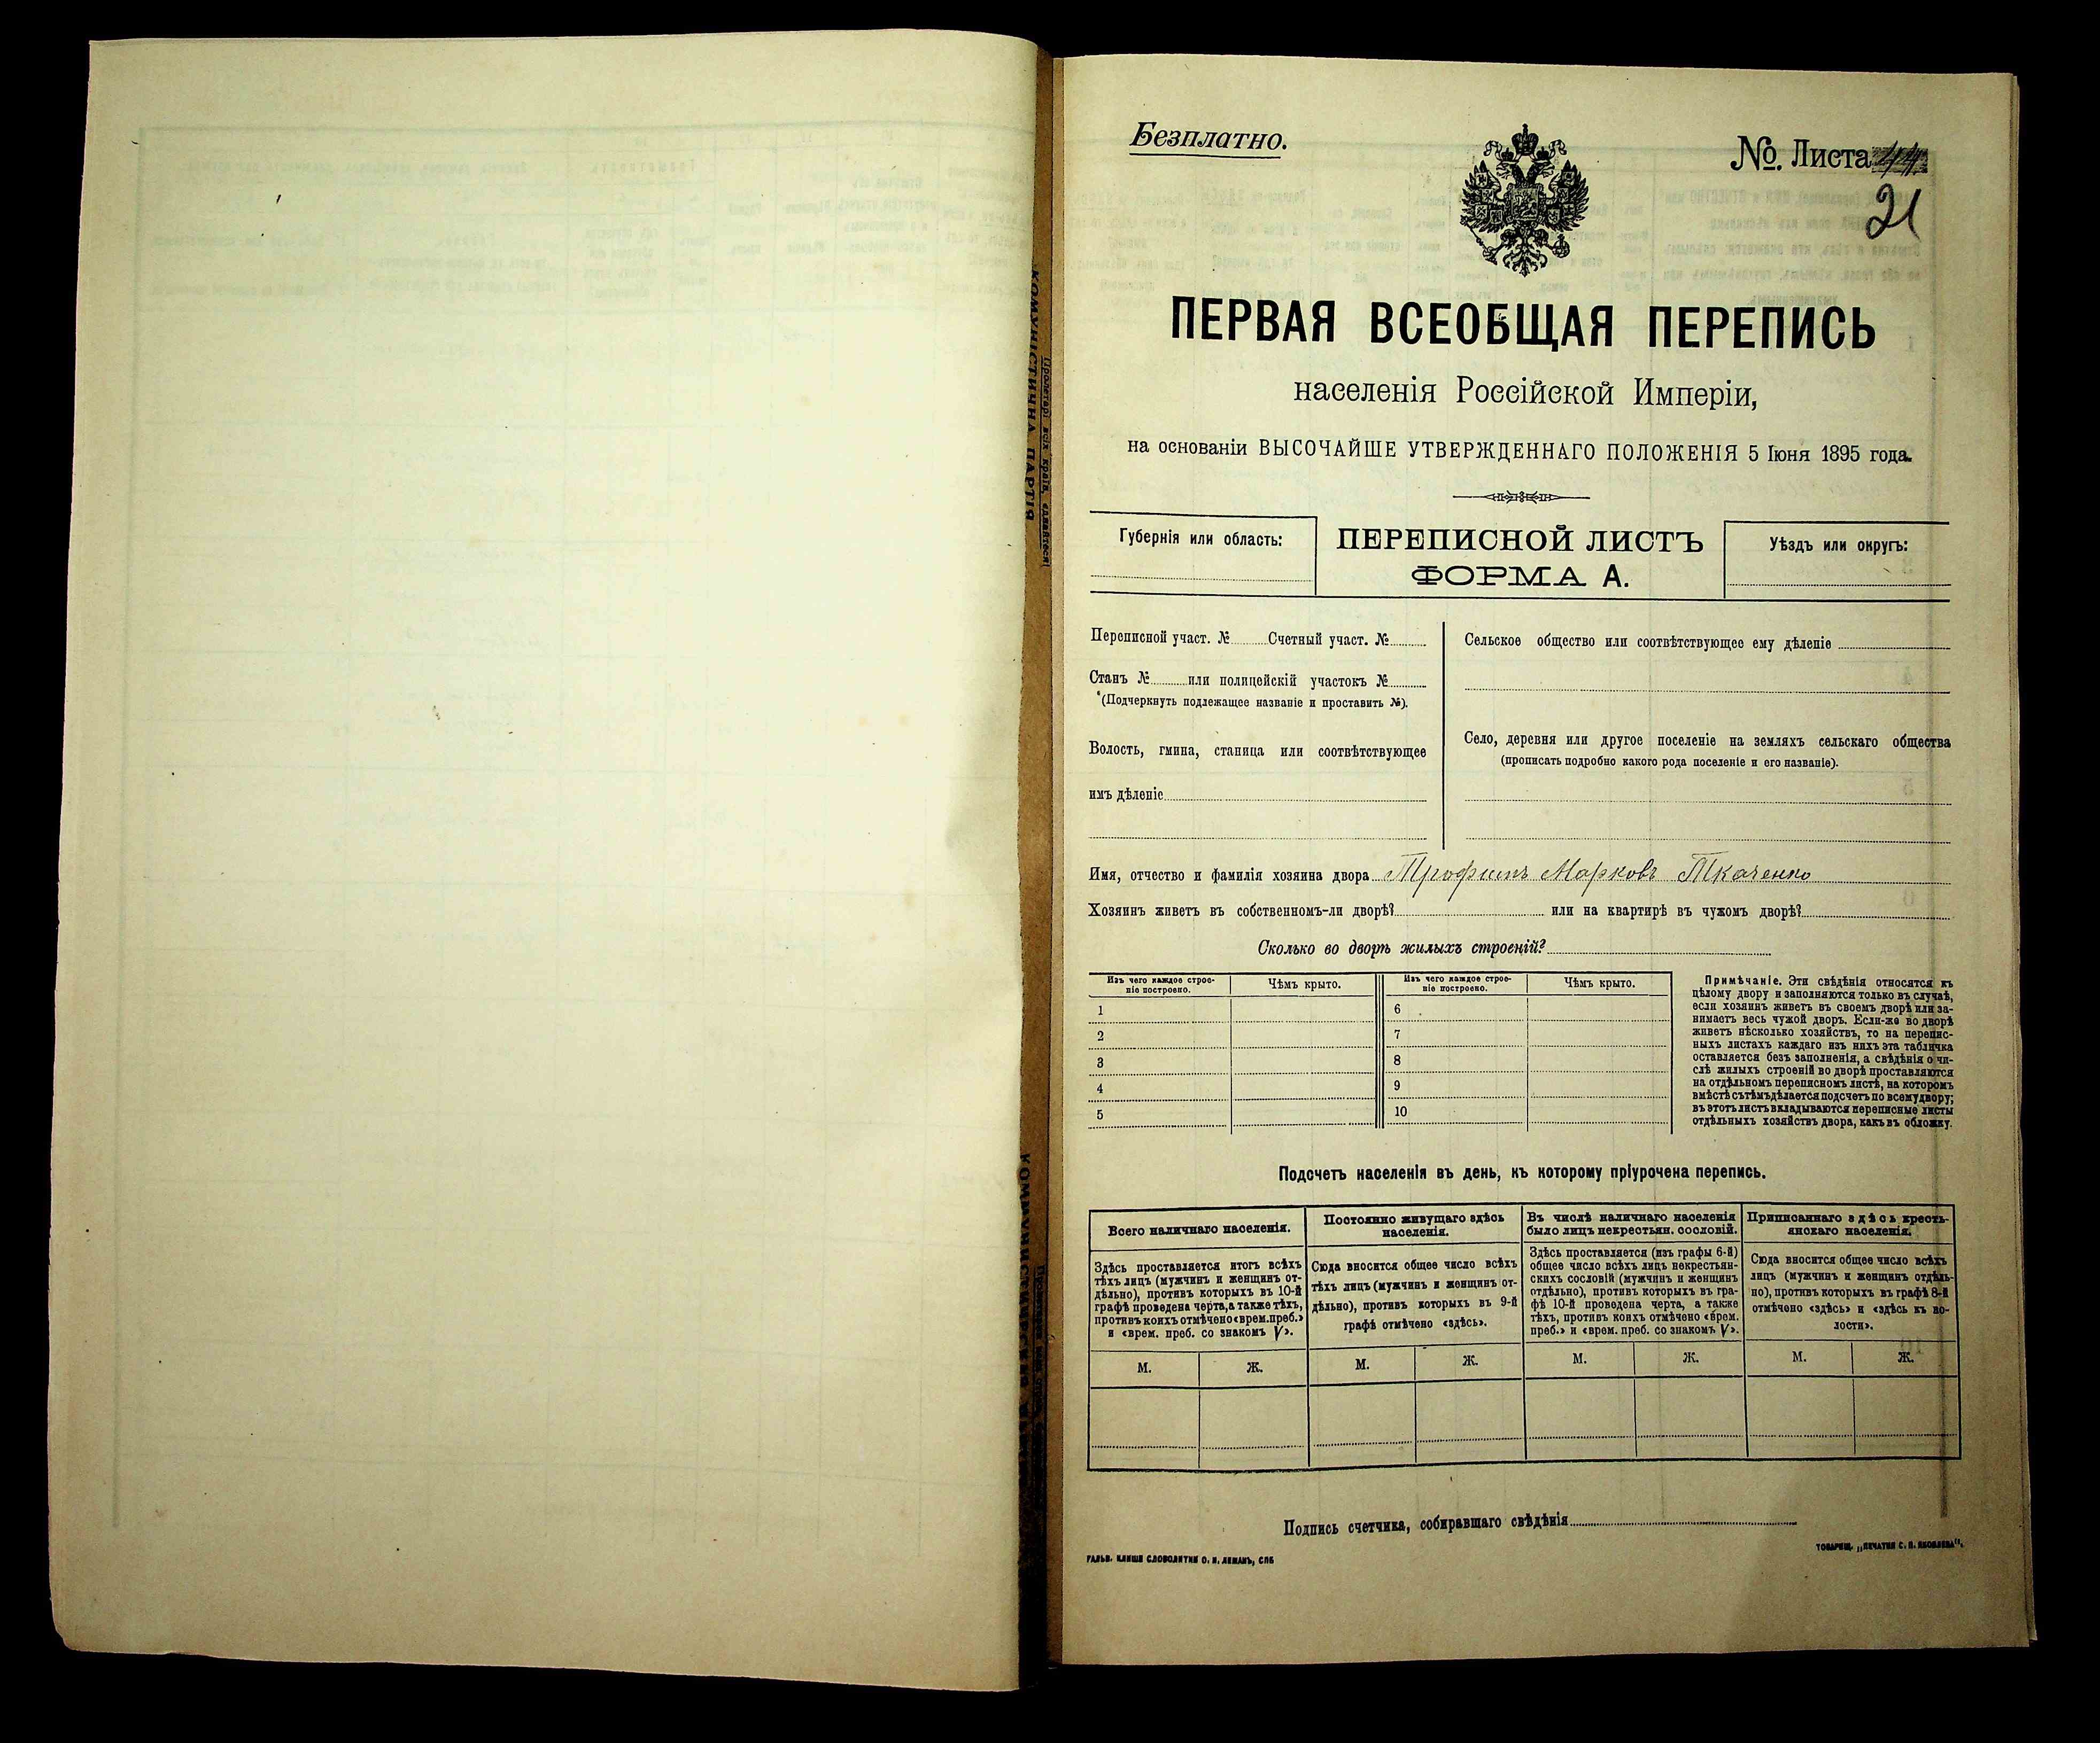 Безплатно.
№. Листа 44
21
ПЕРВАЯ ВСЕОБЩАЯ ПЕРЕПИСЬ
населенія Россійской Имперіи,
на основаніи ВЫСОЧАЙШЕ УТВЕРЖДЕННАГО ПОЛОЖЕНІЯ 5 Іюня 1895 года.
Губернія или область:
ПЕРЕПИСНОЙ ЛИСТЪ
ФОРМА А.
Уѣздъ или округъ:
Переписной участ. № Счетный участ. №
Станъ № или полицейскій участокъ №
(Подчеркнуть подлежащее названіе и проставить №).
Волость, гмина, станица или соотвѣтствующее
имъ дѣленіе
Сельское общество или соотвѣтствующее ему дѣленіе
Село, деревня или другое поселеніе на земляхъ сельскаго общества
(прописать подробно какого рода поселеніе и его названіе).
Имя, отчество и фамилія хозяина двора Трофимъ Марковъ Ткаченко
Хозяинъ живетъ въ собственномъ-ли дворѣ? или на квартирѣ въ чужомъ дворѣ?
Сколько во дворѣ жилыхъ строеній?
Изъ чего каждое строе-
ніе построено.
Чѣмъ крыто.
Изъ чего каждое строе-
ніе построено.
Чѣмъ крыто.
1
2
3
4
5
6
7
8
9
10
Примѣчаніе. Эти свѣдѣнія относятся къ
цѣлому двору и заполняются только въ случаѣ,
если хозяинъ живетъ въ своемъ дворѣ или за-
нимаетъ весь чужой дворъ. Если-же во дворѣ
живетъ нѣсколько хозяйствъ, то на перепис-
ныхъ листахъ каждаго изъ нихъ эта табличка
оставляется безъ заполненія, а свѣдѣнія о чи-
слѣ жилыхъ строеній во дворѣ проставляются
на отдѣльномъ переписномъ листѣ, на которомъ
вмѣстѣ съ тѣмъ дѣлается подсчетъ по всему двору;
въ этотъ листъ вкладываются переписные листы
отдѣльныхъ хозяйствъ двора, какъ въ обложку.
Подсчетъ населенія въ день, къ которому пріурочена перепись.
Всего наличнаго населенія.
Здѣсь проставляется итогъ всѣхъ
тѣхъ лицъ (мужчинъ и женщинъ от-
дѣльно), противъ которыхъ въ 10-й
графѣ проведена черта, а также тѣхъ,
противъ коихъ отмѣчено «врем. преб.»
и «врем. преб. со знакомъ V».
Постоянно живущаго здѣсь
населенія.
Сюда вносится общее число всѣхъ
тѣхъ лицъ (мужчинъ и женщинъ от-
дѣльно), противъ которыхъ въ 9-й
графѣ отмѣчено «здѣсь».
Въ числѣ наличнаго населенія
было лицъ некрестьян. сословій.
Здѣсь проставляется (изъ графы 6-й)
общее число всѣхъ лицъ некрестьян-
скихъ сословій (мужчинъ и женщинъ
отдѣльно), противъ которыхъ въ гра-
фѣ 10-й проведена черта, а также
тѣхъ, противъ коихъ отмѣчено «врем.
преб.» и «врем. преб. со знакомъ V».
Приписаннаго здѣсь кресть-
янскаго населенія.
Сюда вносится общее число всѣхъ
лицъ (мужчинъ и женщинъ отдѣль-
но), противъ которыхъ въ графѣ 8-й
отмѣчено «здѣсь» и «здѣсь къ во-
лости».
М. Ж. М. Ж. М. Ж. М. Ж.
Подпись счетчика, собиравшаго свѣдѣнія
ГАЛЬВ. КЛИШЕ СЛОВОЛИТНИ О. И. ЛЕМАНЪ, СПБ
ТОВАРИЩ. „ПЕЧАТНЯ С. П. ЯКОВЛЕВА".
Пролетарі всіх країн, єднайтеся!
КОМУНІСТИЧНА ПАРТІЯ